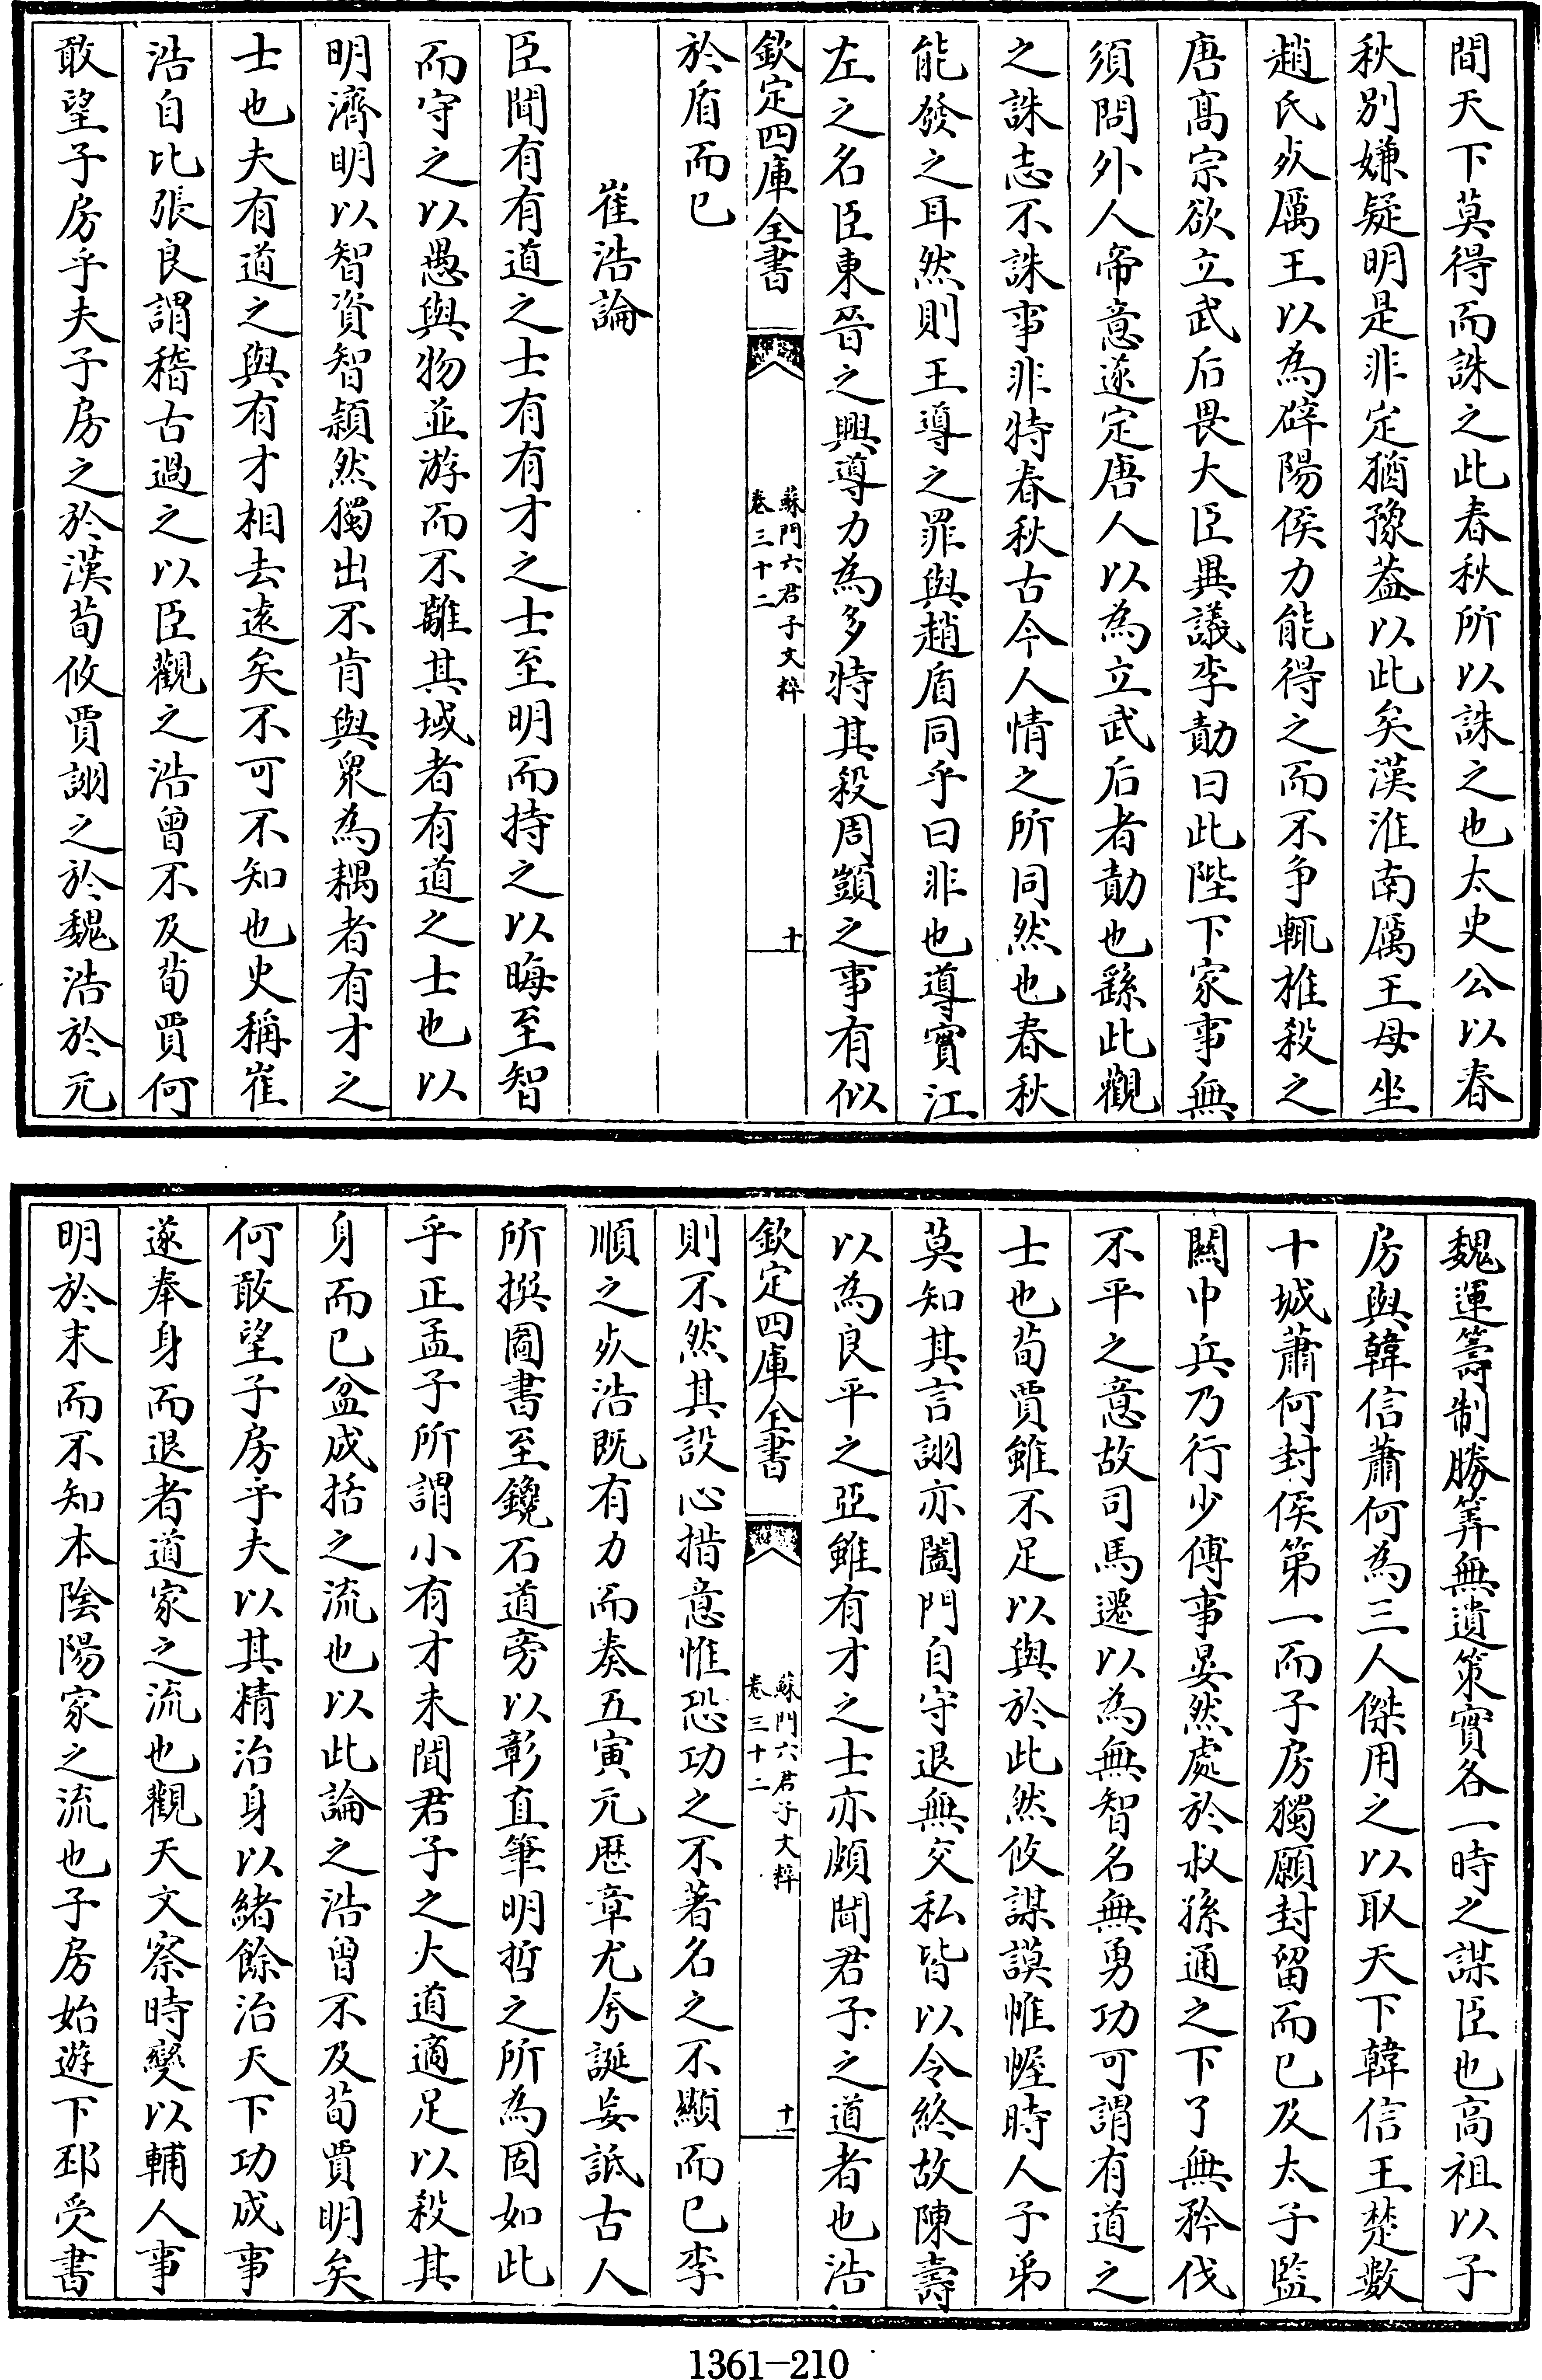 間天下莫得而誅之此春秋所以誅之也太史公以春
秋别嫌疑明是非定猶豫葢以此矣漢淮南厲王母坐
趙氏死厲王以為辟陽侯力能得之而不争輒椎殺之
唐髙宗欲立武后畏大臣異議李勣曰此陛下家事無
須問外人帝意遂定唐人以為立武后者勣也繇此觀
之誅志不誅事非特春秋古今人情之所同然也春秋
能發之耳然則王導之罪與趙盾同乎曰非也導實江
左之名臣東晉之興導力為多特其殺周顗之事有似
欽定四庫全書
蘇門六君子文粹
卷三十二
十
於盾而已
崔浩論
臣聞有有道之士有有才之士至明而持之以晦至智
而守之以愚與物並游而不離其域者有道之士也以
明濟明以智資智穎然獨出不肯與衆為耦者有才之
士也夫有道之與有才相去逺矣不可不知也史稱崔
浩自比張良謂稽古過之以臣觀之浩曾不及荀賈何
敢望子房乎夫子房之於漢荀攸賈詡之於魏浩於元
魏運籌制勝筭無遺策實各一時之謀臣也高祖以子
房與韓信蕭何為三人傑用之以取天下韓信王楚數
十城蕭何封侯第一而子房獨願封留而已及太子監
關中兵乃行少傅事晏然處於叔孫通之下了無矜伐
不平之意故司馬遷以為無智名無勇功可謂有道之
士也荀賈雖不足以與於此然攸謀謨帷幄時人子弟
莫知其言詡亦闔門自守退無交私皆以令終故陳壽
以為良平之亞雖有才之士亦頗聞君子之道者也浩
欽定四庫全書
蘇門六君子文粹
卷三十二
十一
則不然其設心措意惟恐功之不著名之不顯而已李
順之死浩既有力而奏五寅元厯章尤夸誕妄詆古人
所撰圖書至鑱石道旁以彰直筆明哲之所為固如此
乎正孟子所謂小有才未聞君子之大道適足以殺其
身而已盆成括之流也以此論之浩曾不及荀賈明矣
何敢望子房乎夫以其精治身以緒餘治天下功成事
遂奉身而退者道家之流也觀天文察時變以輔人事
明於末而不知本陰陽家之流也子房始遊下邳受書
1361-210